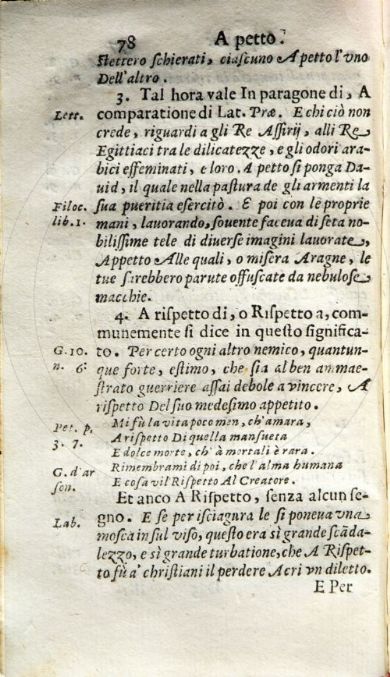 78 A petto.
ſtettero ſchierati, ciaſcuno A petto l'vno
Dell'altro.
3. Tal hora vale In paragone di, A
Lett. comparatione di Lat. Præ. E chi ciò non
crede, riguardi a gli Re Aſſirij, alli Re
Egittiaci tra le dilicatezze, e gli odori ara-
bici effeminati, e loro. A petto ſi ponga Da-
uid, il quale nella paſtura de gli armenti la
Filoc. ſua pueritia eſercitò. E poi con le proprie
lib. 1. mani, lauorando, ſouente faceua di ſeta no-
biliſſime tele di diuerſe imagini lauorate,
Appetto Alle quali, o miſera Aragne, le
tue ſarebbero parute offuſcate da nebuloſe
macchie.
4. A riſpetto di, o Riſpetto a, com-
munemente ſi dice in queſto ſignifica-
G. 10. to. Per certo ogni altro nemico, quantun-
n. 6: que forte, eſtimo, che ſia al ben ammae-
ſtrato guerriere aſſai debole a vincere, A
riſpetto Del ſuo medeſimo appetito.
Pet. p. Mi fù la vita poco men, ch'amara,
3. 7. A riſpetto Di quella manſueta
E dolce morte, ch'à mortali è rara.
G. d'ar Rimembrami di poi, che l'alma humana
ſen. E coſa vil Riſpetto Al Creatore.
Et anco A Riſpetto, ſenza alcun ſe-
Lab. gno. E ſe per iſciagura le ſi poneua vna
moſca in ſul viſo, queſto era sì grande ſcāda-
lezzo, e sì grande turbatione, che A Riſpet-
to fù a' chriſtiani il perdere Acri vn diletto.
E Per